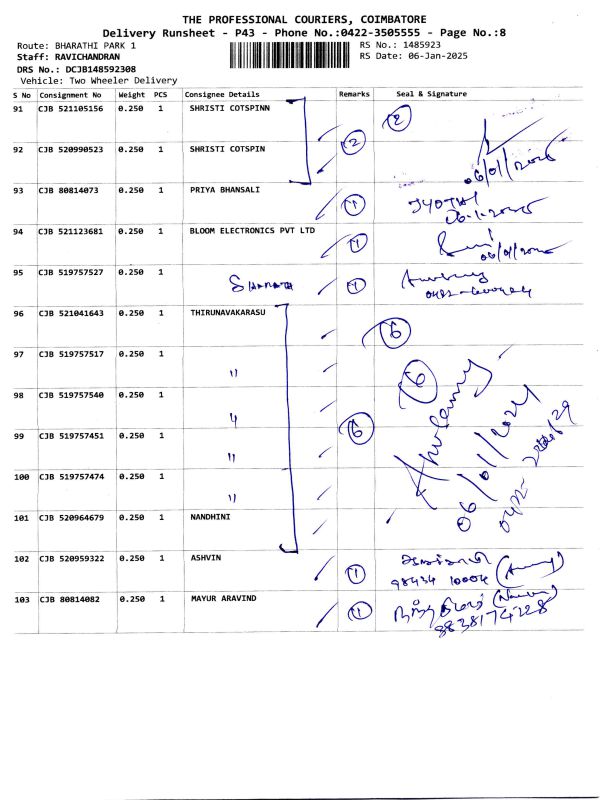 THE PROFESSIONAL COURIERS, COIMBATORE
Delivery Runsheet - P43 - Phone No.:0422-3505555 - Page No.:8
Route: BHARATHI PARK 1
RS No.: 1485923
Staff: RAVICHANDRAN
RS Date: 06-Jan-2025
DRS No.: DCJB148592308
Vehicle: Two Wheeler Delivery
S No Consignment No Weight PCS Consignee Details Remarks Seal & Signature
91 CJB 521105156 0.250 1 SHRISTI COTSPINN 2
92 CJB 520990523 0.250 1 SHRISTI COTSPIN 2 06/01/2025
93 CJB 80814073 0.250 1 PRIYA BHANSALI 1 JYOTHI
06-1-2025
94 CJB 521123681 0.250 1 BLOOM ELECTRONICS PVT LTD 1
06/01/2025
95 CJB 519757527 0.250 1 1
96 CJB 521041643 0.250 1 THIRUNAVAKARASU 6
97 CJB 519757517 0.250 1 〃 6
98 CJB 519757540 0.250 1 〃
99 CJB 519757451 0.250 1 〃 6
100 CJB 519757474 0.250 1 〃
06/01/2024
101 CJB 520964679 0.250 1 NANDHINI
102 CJB 520959322 0.250 1 ASHVIN 1
98434 10004
103 CJB 80814082 0.250 1 MAYUR ARAVIND 1
8838174228